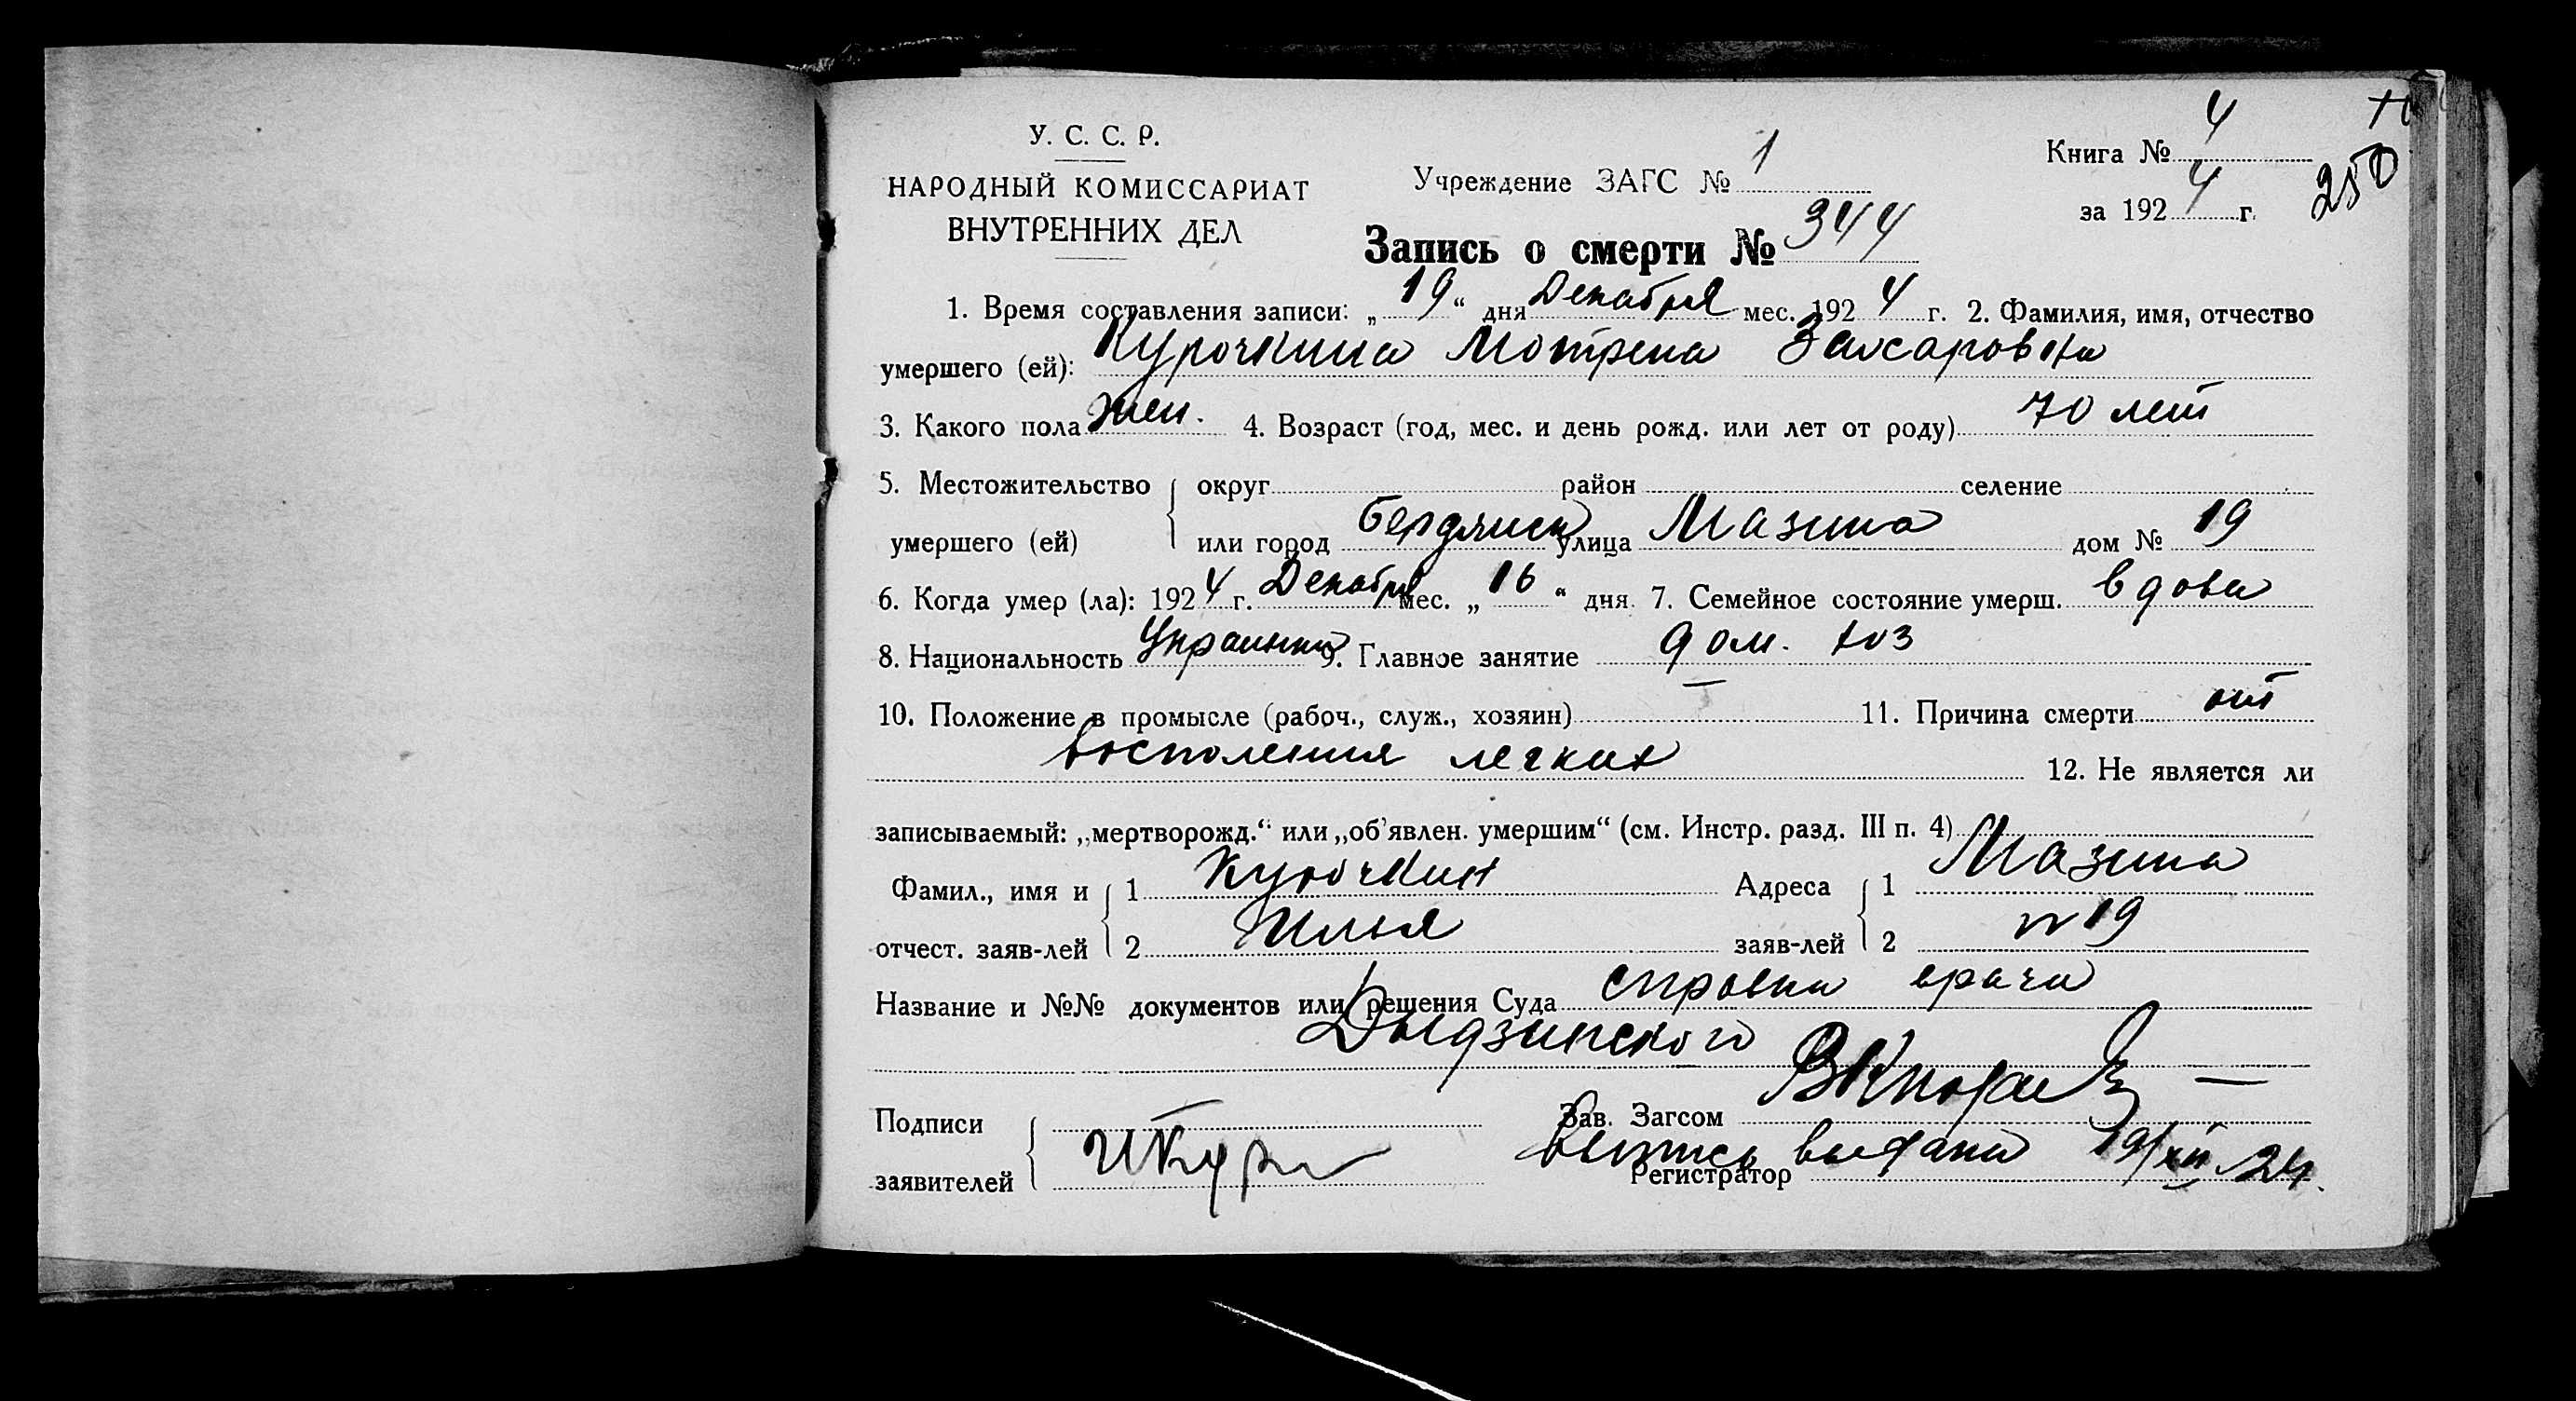 У. С. С. Р.
НАРОДНЫЙ КОМИССАРИАТ
ВНУТРЕННИХ ДЕЛ
Учреждение ЗАГС № 1
Книга № 4
за 1924 г.
250
Запись о смерти № 344
1. Время составления записи: „19“ дня Декабря мес. 1924 г. 2. Фамилия, имя, отчество
умершего (ей): Курочкина Мотрена Захаровна
3. Какого пола жен. 4. Возраст (год, мес. и день рожд. или лет от роду) 70 лет
5. Местожительство округ район селение
умершего (ей) или город Бердянск улица Мазина дом № 19
6. Когда умер (ла): 1924 г. Декабря мес. „16“ дня 7. Семейное состояние умерш. вдова
8. Национальность Украинка 9. Главное занятие дом. хоз
10. Положение в промысле (рабоч., служ., хозяин) — 11. Причина смерти от
восполения легких 12. Не является ли
записываемый: „мертворожд.“ или „об'явлен. умершим“ (см. Инстр. разд. III п. 4)
Фамил., имя и 1 Курочкин Адреса 1 Мазина
отчест. заяв-лей 2 Илья заяв-лей 2 № 19
Название и №№ документов или решения Суда справка врача
Дыдзинского
Подписи Зав. Загсом
заявителей ИКур Выпись выдана 19/XII 24.
Регистратор